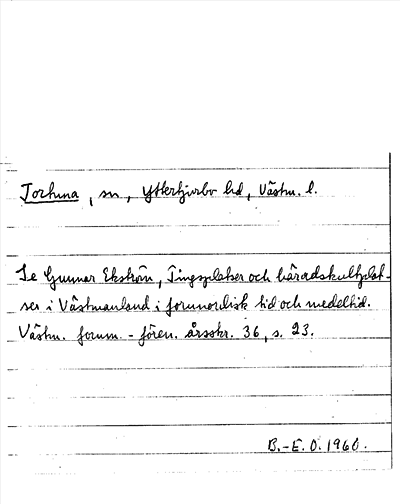 Torhuna, sn, Yttertjurbo hd, Västm. l.
Se Gunnar Ekström, Tingsplatser och häradskultplat-
ser i Västmanland i fornnordisk tid och medeltid.
Västm. fornm.-fören. årsskr. 36, s. 23.
B.-E. O. 1960.